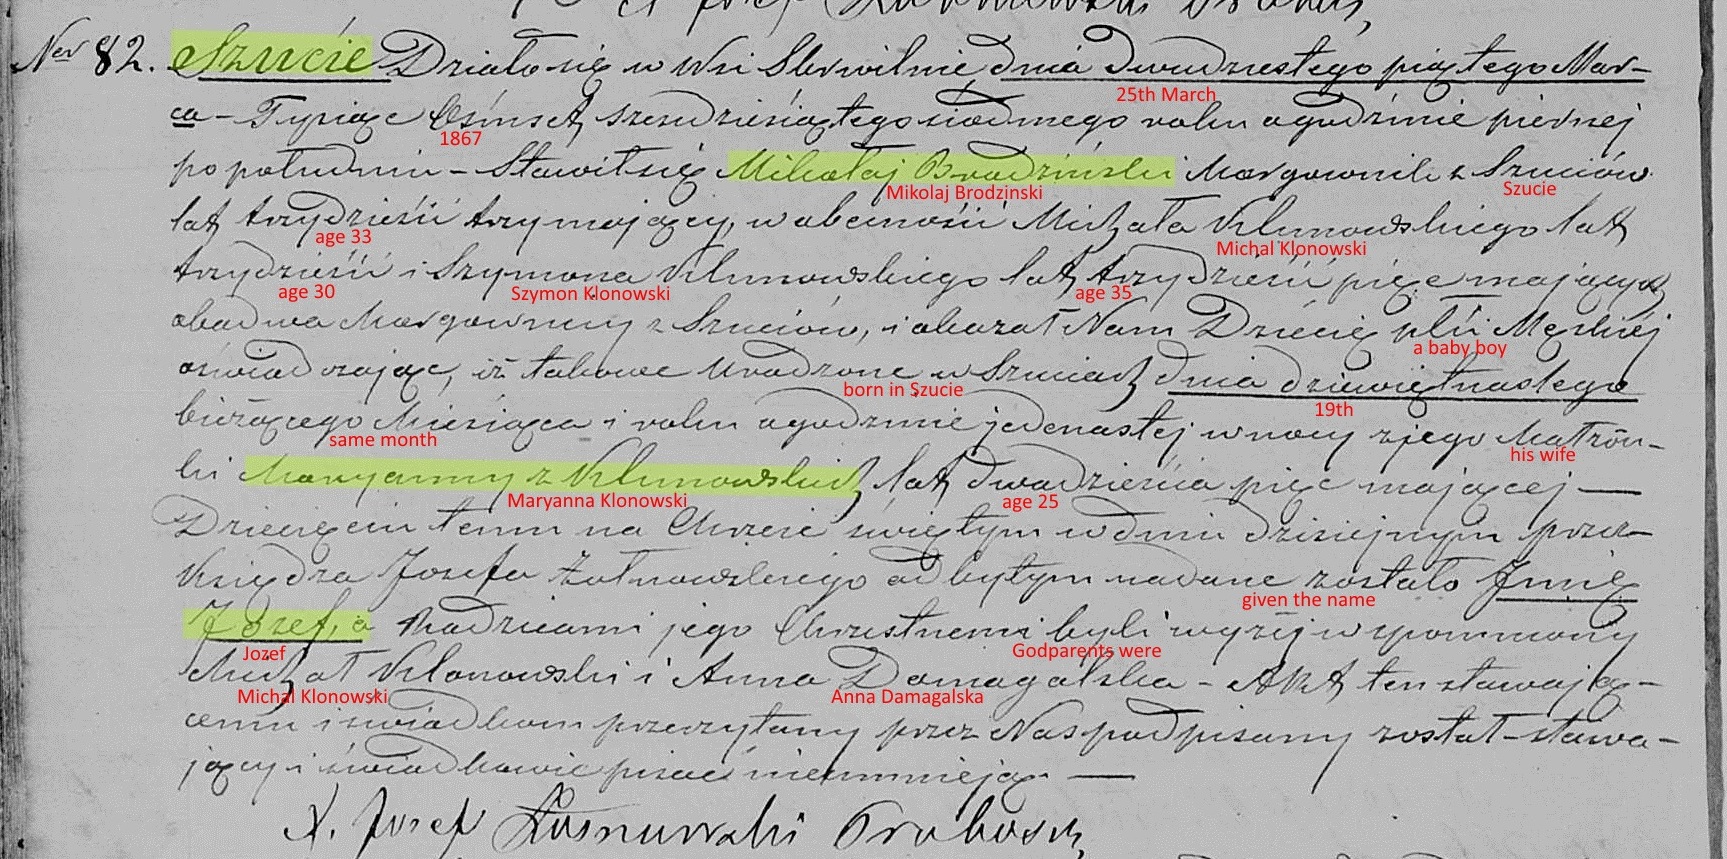 X. Józef
Ner 82. Szucie Działo się w Wsi Skrwilnie dnia dwudziestego piątego Mar-
25th March
ca - Tysiąc Ośmset sześćdziesiątego siódmego roku o godzinie pierwszej
1867
po południu - Stawił się Mikołaj Brodziński Morgownik z Szuciów
Mikolaj Brodzinski Szucie
lat trzydzieści trzy mający, w obecności Michała Klonowskiego lat
age 33 Michal Klonowski
trzydzieści i Szymona Klonowskiego lat trzydzieści pięć mających
age 30 Szymon Klonowski age 35
obadwa Morgownicy z Szuciów, i okazał Nam Dziecię płci Męskiéj
a baby boy
oświadczając, iż takowe urodzone w Szuciach dnia dziewiętnastego
born in Szucie 19th
bieżącego Miesiąca i roku o godzinie jedenastej w nocy z jego Małżon-
same month his wife
ki Maryanny z Klonowskich lat dwadzieścia pięć mającej —
Maryanna Klonowski age 25
Dziecięciu temu na Chrzcie świętym w dniu dzisiejszym przez
Księdza Józefa odbytym nadane zostało Imię
given the name
Józef, a Rodzicami jego Chrzestnemi byli wyżéj wspomniony
Jozef Godparents were
Michał Klonowski i Anna Domagalska - Akt ten stawają-
Michal Klonowski Anna Damagalska
cemu i świadkom przeczytany przez Nas podpisany został - stawa-
jący i świadkowie pisać nieumieją. —
X. Józef Proboszcz